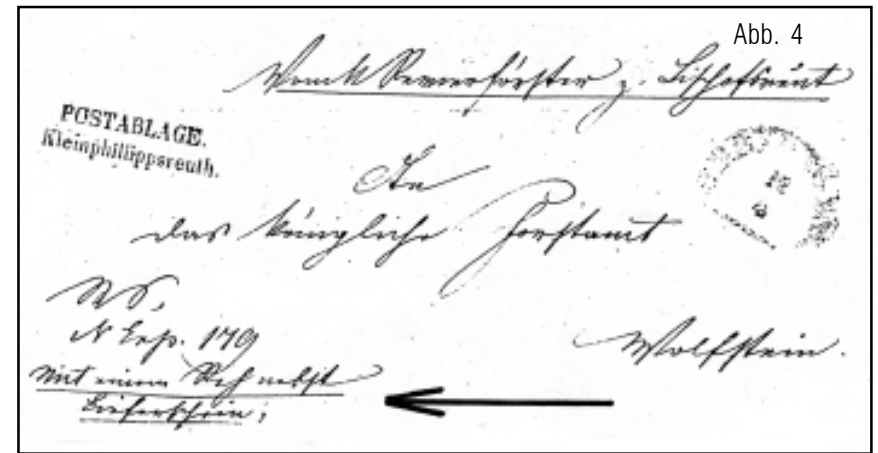 Abb. 4
Vom k Revierförster z. Bischofsreut
POSTABLAGE.
Kleinphillippsreuth.
An
das königliche Forstamt
Wolfstein.
N Exp. 179
mit einem Reh nebst
Lieferschein;